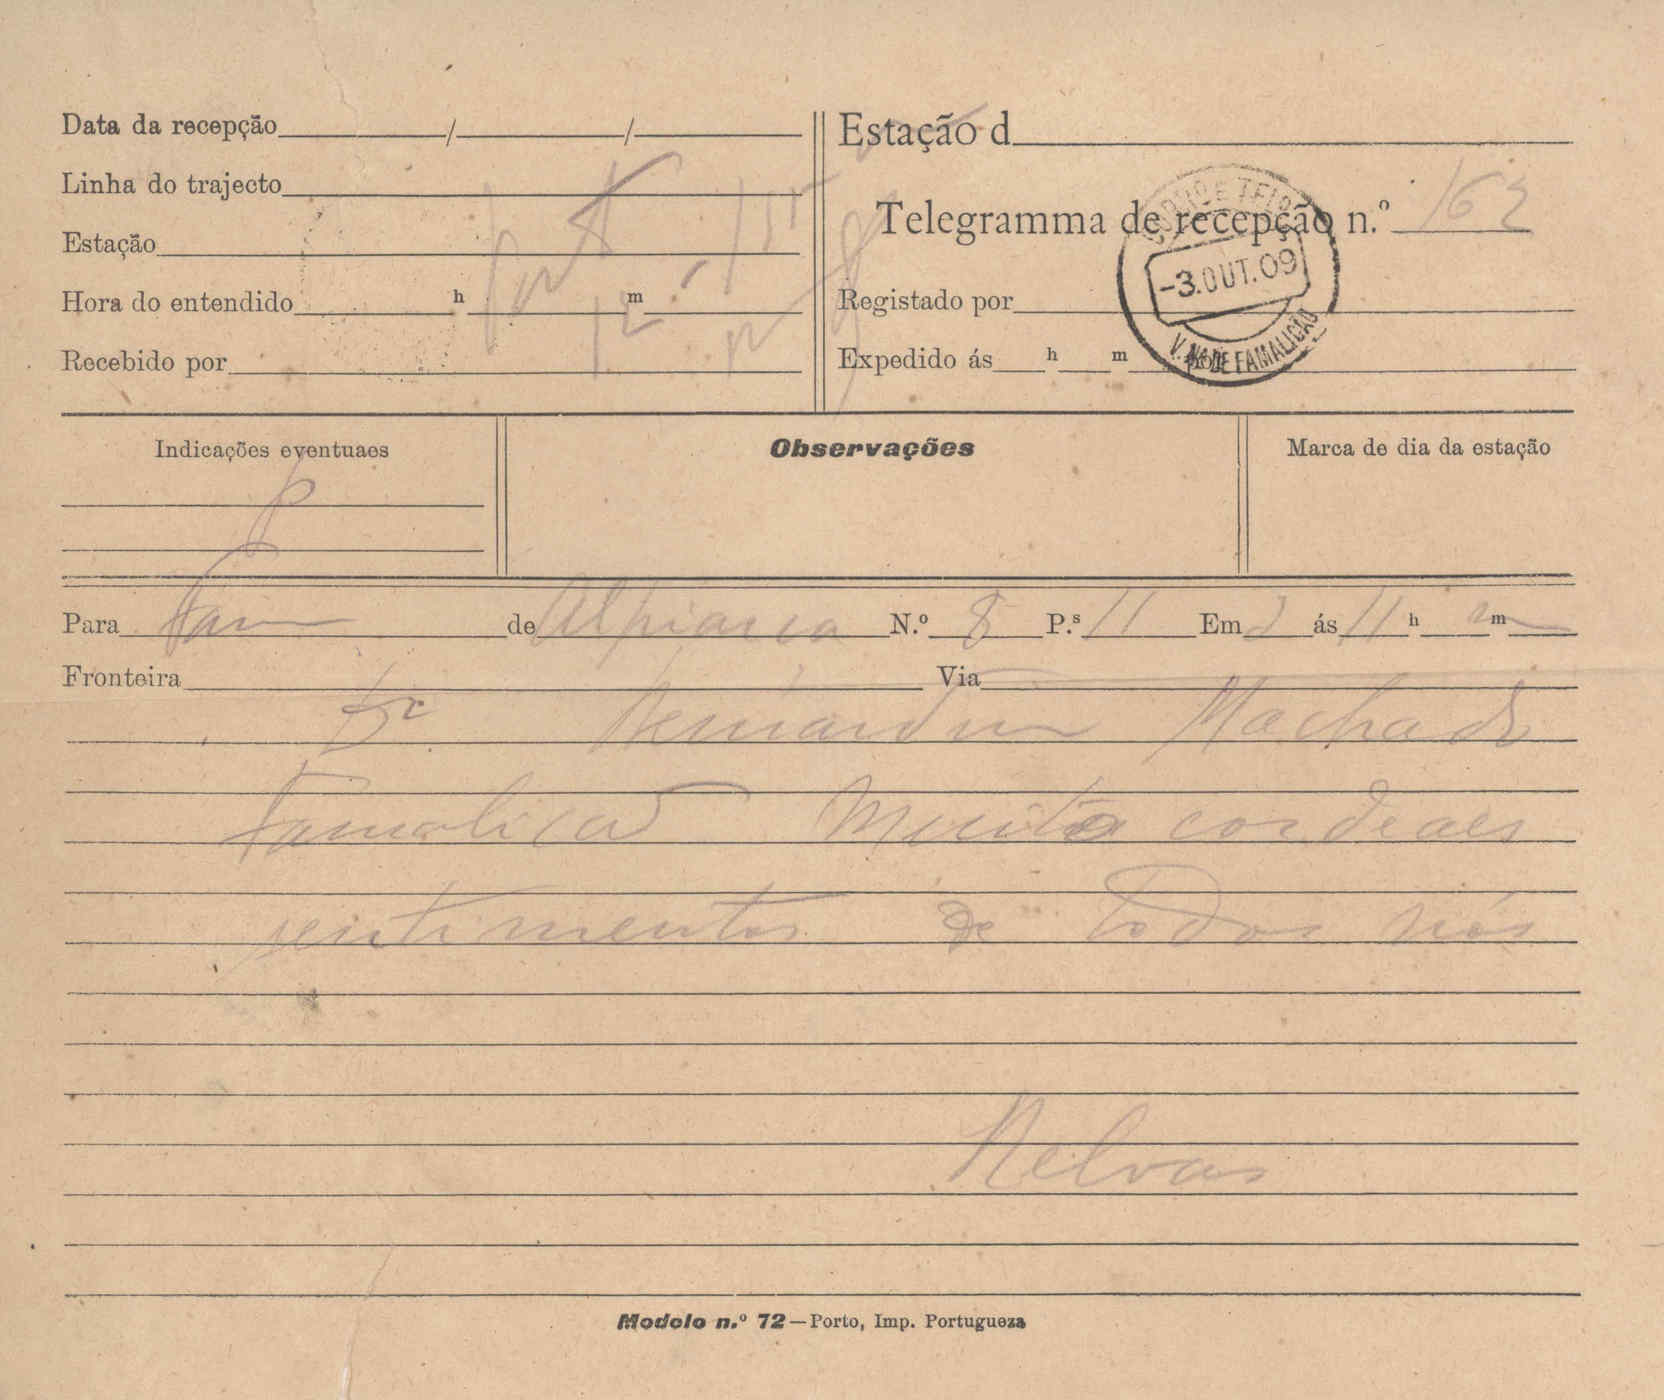 Data da recepção / /
Linha do trajecto
Estação
Hora do entendido h m
Recebido por
Estação d
Telegramma de recepção n.º 162
Registado por
Expedido ás h m
-3.OUT.09
V. NA DE FAMALICÃO
Indicações eventuaes
Observações
Marca de dia da estação
Para Fam de Alpiarca N.º 8 P.s 11 Em 3 ás 11 h m
Fronteira Via
Dr Bernardino Machado
Famalicão Muito cordeaes
sentimentos de todos nós
Relvas
Modelo n.º 72—Porto, Imp. Portugueza